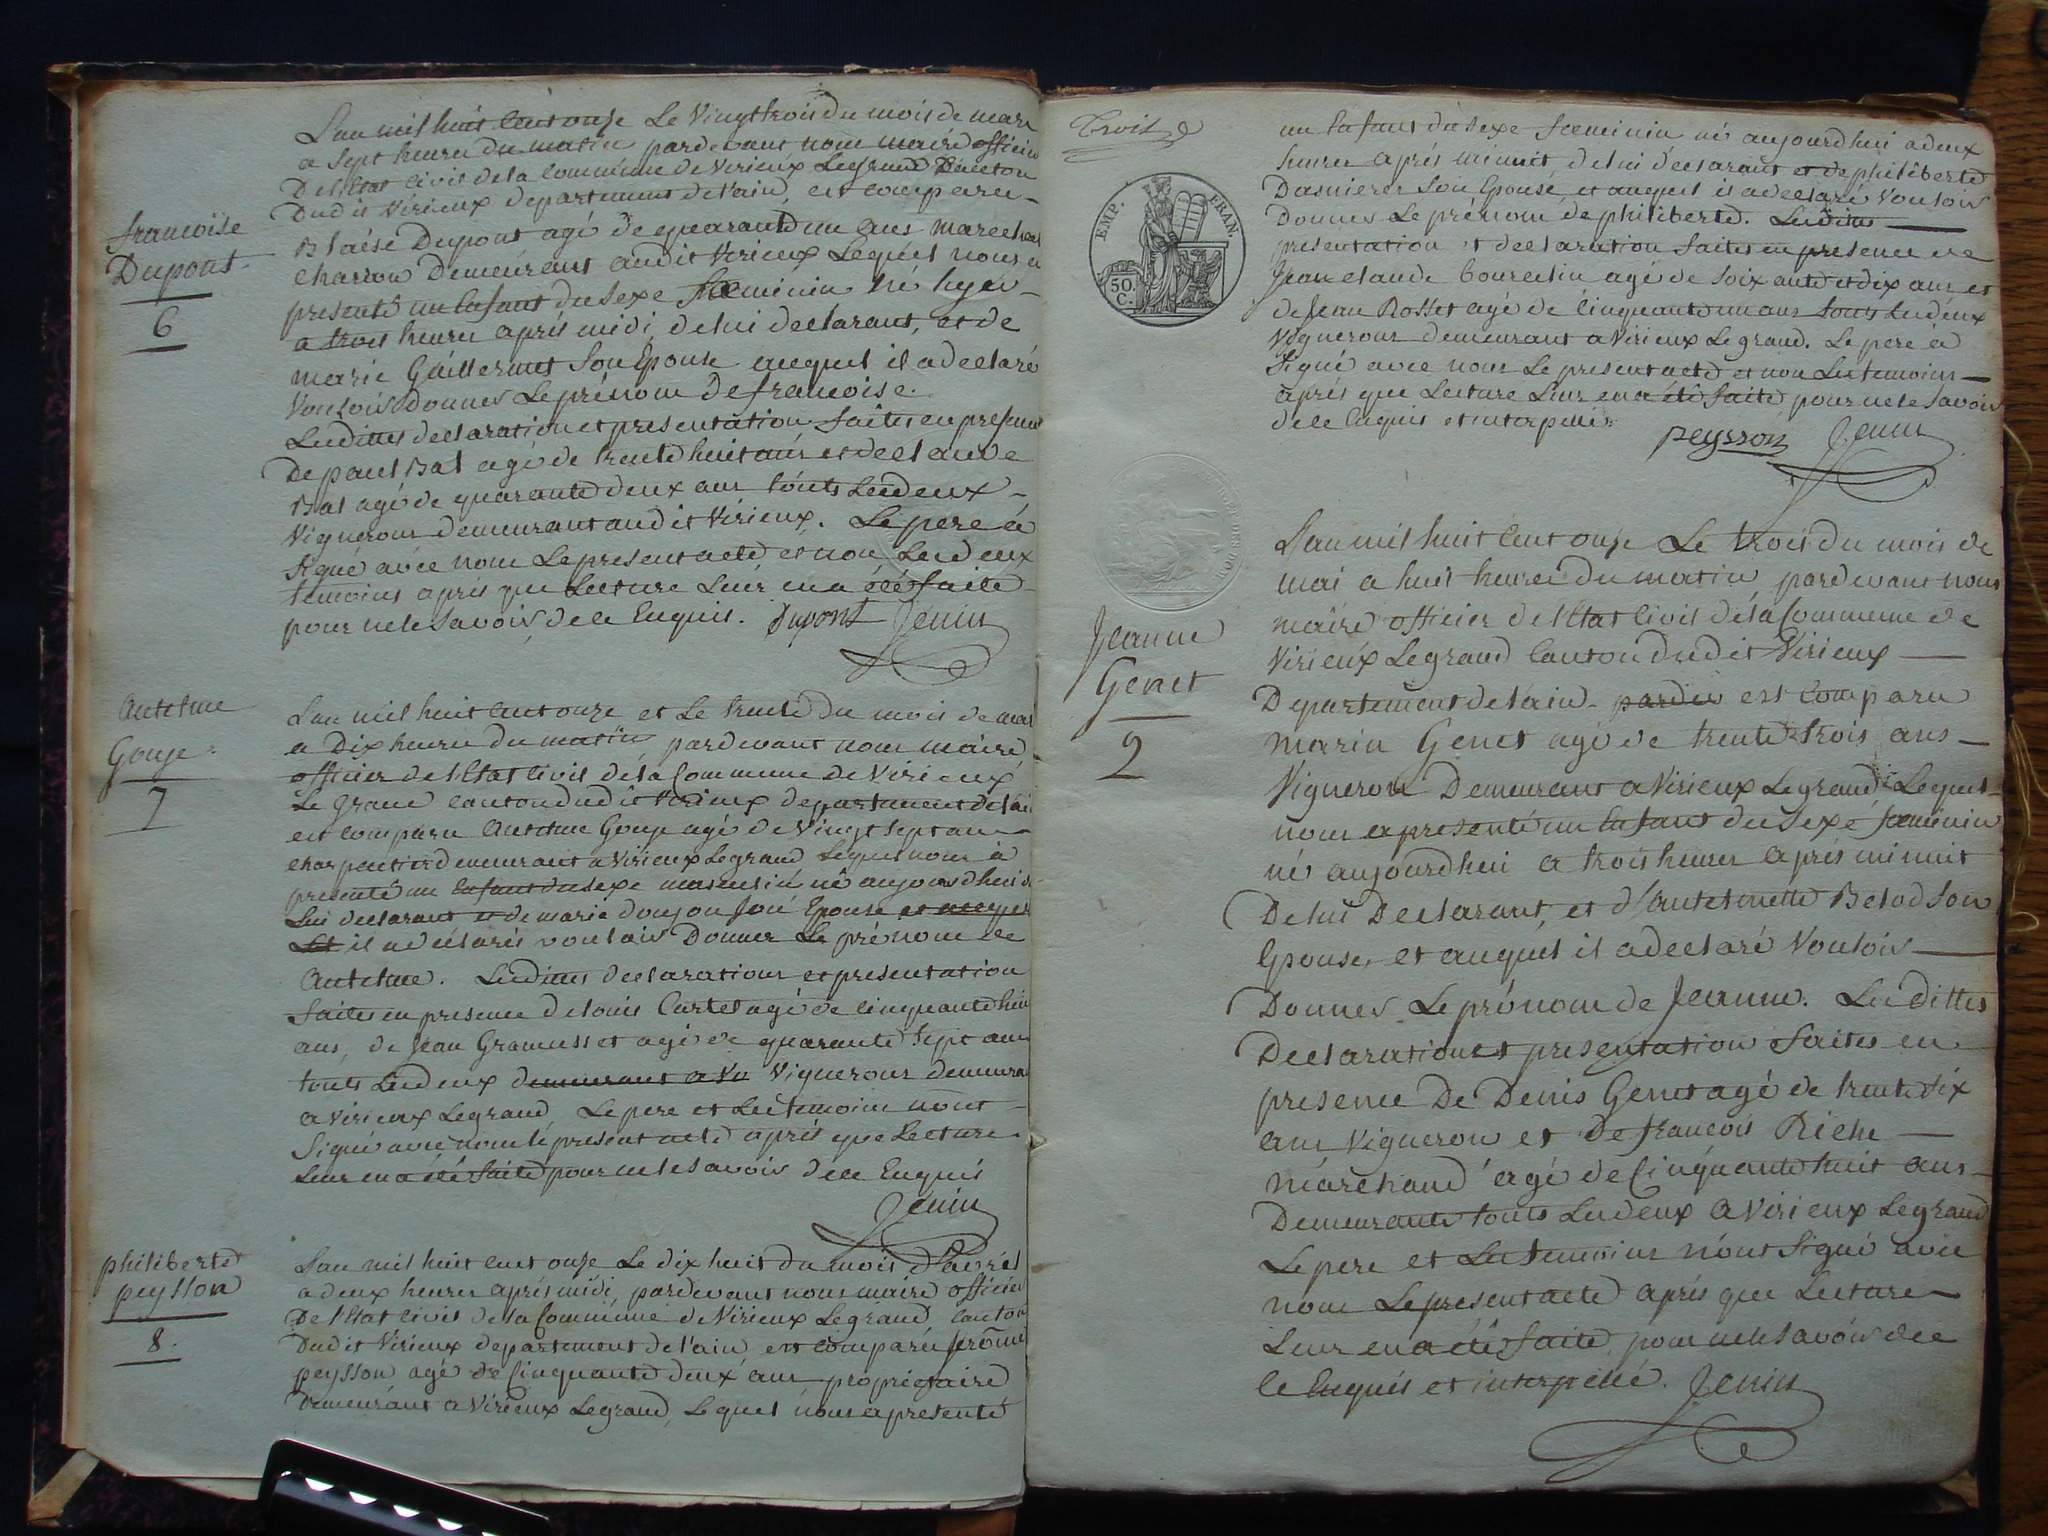 L'an mil huit cent onze Le Vingt trois du mois de mars
a sept heures du matin pardevant nous maire officier
De l'Etat civil de la Commune de Virieux Legrand Canton
Dudit Virieux departement de l'ain, est comparu
francoise
Dupont
6
Blaise Dupont agé de quarante un ans marechal
charron Demeurant audit Virieux Lequel nous a
presenté un Enfant du sexe fœminin né hyer
a trois heures après midi, de lui declarant, et de
marie Guillermet son Epouse auquel il a declaré
Vouloir donner Le prénom de francoise.
Lesdittes declaration et presentation faites en presence
De paul Bal agé de trente huit ans et de claude
Bal agé de quarante deux ans touts Lesdeux
Vignerons demeurant audit Virieux. Le pere a
signé avec nous Le present acte et non Lesdeux
temoins après que Lecture Leur en a été faite
pour ne le savoir, de ce Enquis. Dupont Jenin
Antelme
Gouje
7
L'an mil huit cent onze et Le trente du mois de mars
a Dix heures du matin, pardevant nous maire
officier de l'Etat civil de la Commune de Virieux
Le grand canton dudit Virieux departement de l'ain
est comparu Antelme Gouje agé de Vingt sept ans
charpentier demeurant a Virieux Legrand Lequel nous à
presenté un Enfant du sexe masculin né aujourdhui de
Lui declarant et de marie Doujon son Epouse et auquel
il a déclaré vouloir Donner Le prénom de
Antelme. Lesdittes declarations et presentation
faites en presence de louis Cartet agé de cinquante huit
ans, de Jean Gramusset agé de quarante sept ans
touts Lesdeux demeurant a Vir Vignerons demeurant
a Virieux Legrand. Le pere et Les temoins n'ont
Signé avec nous le present acte après que Lecture
Leur en a été faite pour ne le savoir de ce Enquis
Jenin
philiberte
peysson
8.
L'an mil huit cent onze Le dix huit du mois d'avril
a deux heures après midi, pardevant nous maire officier
De l'Etat civil de la Commune de Virieux Legrand, Canton
Dudit Virieux departement de l'ain est comparu Jerôme
peysson agé de Cinquante deux ans propriétaire
demeurant a Virieux Legrand, Lequel nous a presenté
trois
EMP. FRAN.
50. C.
un Enfant du sexe fœminin né aujourdhui a deux
heures après minuit, de lui déclarant et de philiberte
Dasnieres son Epouse, et auquel il a declaré Vouloir
Donner Le prénom de philiberte. Lesdittes
presentation et declaration faites en presence de
Jean claude Bourdin agé de soixante et dix ans et
de Jean Rosset agé de Cinquante un ans touts Lesdeux
Vignerons demeurant a Virieux Legrand. Le pere a
Signé avec nous Le present acte et non Les temoins
après que Lecture Leur en a été faite, pour ne le savoir
de ce Enquis et interpellés
peysson Jenin
Jeanne
Genet
2
L'an mil huit cent onze Le trois du mois de
mai a huit heures du matin, pardevant nous
maire officier de l'Etat civil de la Commune de
Virieux Legrand Canton dudit Virieux
Departement de l'ain. pardev est comparu
marin Genet agé de trente trois ans
Vigneron Demeurant a Virieux Legrand Lequel
nous a presenté un Enfant du sexe fœminin
né aujourdhui a trois heures après minuit
De lui Declarant, et d'Antelmette Belod son
Epouse, et auquel il a declaré Vouloir
Donner Le prénom de Jeanne. Lesdittes
Declaration et presentation faites en
presence De Denis Genet agé de trente six
ans Vigneron et De francois Riche
marchand agé de Cinquante huit ans
Demeurants touts Lesdeux a Virieux Legrand
Le pere et Les temoins n'ont Signé avec
nous Le present acte après que Lecture
Leur en a été faite, pour ne le savoir de
ce Enquis et interpellé. Jenin